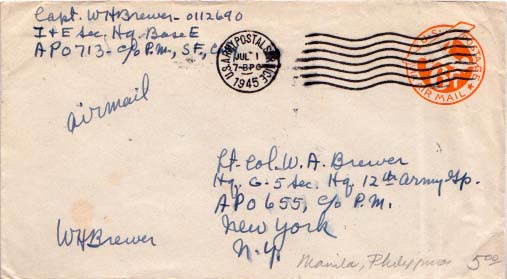 Capt. WHBrewer - 0112690
I+E Sec. Hq. Base E
APO 713 - c/o P.M., SF.,
U.S. ARMY POSTAL SERVICE
JUL 1
1945
AIR MAIL
airmail
Lt. Col. W. A. Brewer
Hq. G-5 Sec. Hq. 12th Army Gp.
APO 655, c/o P.M.
New York
N.Y.
WHBrewer
Manila, Philippines 5.00